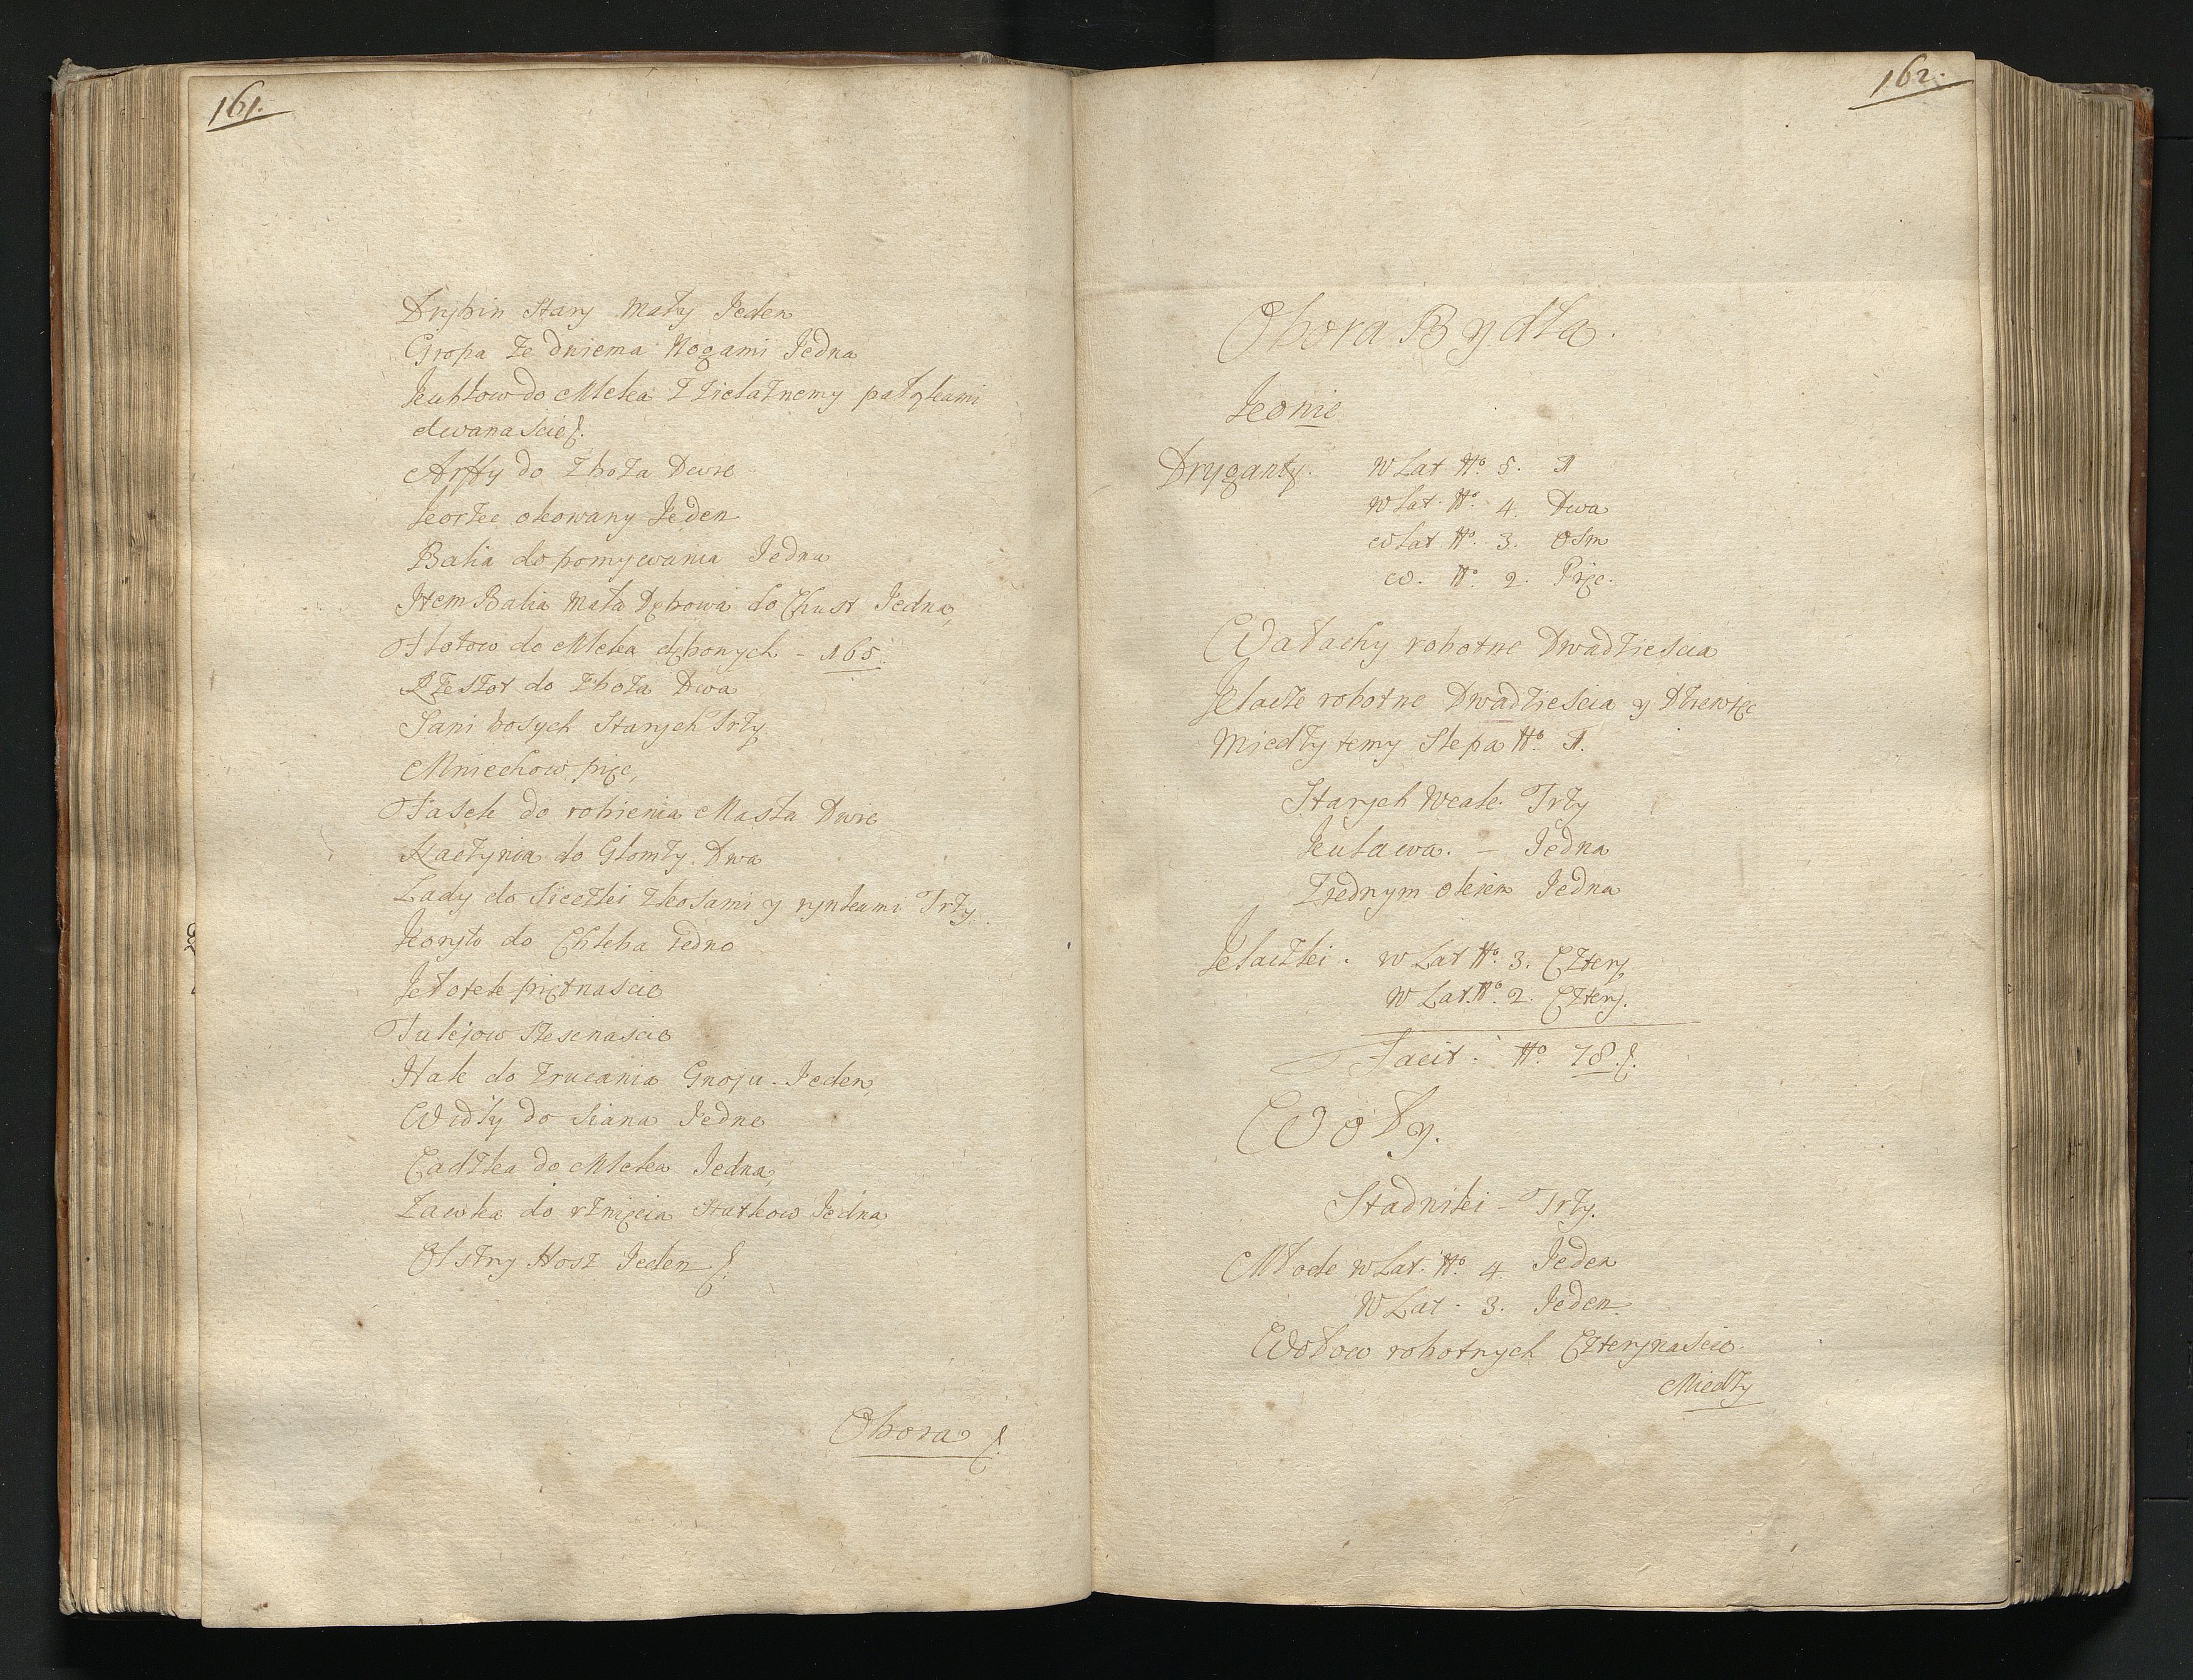 161.
Drybin Stary Mały Jeden
Gropa ze dwiema Nogami Jedna
Kubłow do Mleka z żielaznemy pałąkami
dwanascie
Arffy do zboża Dwie
Korzec okowany Jeden
Balia do pomywania Jedna
Item Balia mała Dębowa do Chust Jedna,
Stotow do Mleka dębowych – 165.
Rzeszot do zboża Dwa
Sani bosych Starych Trży
Mniechow pięc,
Fasek do robienia Masła Dwie
Naczynia do Glomzy Dwa
Lady do Sieczki z kosami y rynkami Trży.
Koryto do Chleba iedno
Kłotek piętnascie
Tulejow szesnascie
Hak do zrucania Gnoju Jeden,
Widły do Siana Jedne
Cadzka do Mleka Jedna,
Ławka do rznięcia Statkow Jedna
Olstry Nosz Jeden
Obora
162.
Obora Bydła.
Konie
Dryganty. w Lat No 5. 1
w Lat No. 4. Dwa
w Lat No. 3. Osm
w. No. 2. Pięc.
Wałachy robotne Dwadzieścia
Klacze robotne Dwadzieścia y Dziewięc
Miedzy temy Slepa No 1.
Starych Wcale Trży
Kulawa. – Jedna
Z iednym okiem Jedna
Klaczki. w Lat No. 3. Cztery
w Lat. No. 2. Cztery.
Facit. No 78.
Woły.
Stadniki – Trży.
Młode w Lat. No. 4. Jeden
w Lat. 3. Jeden
Wołow robotnych Czterynascie.
Miedzy